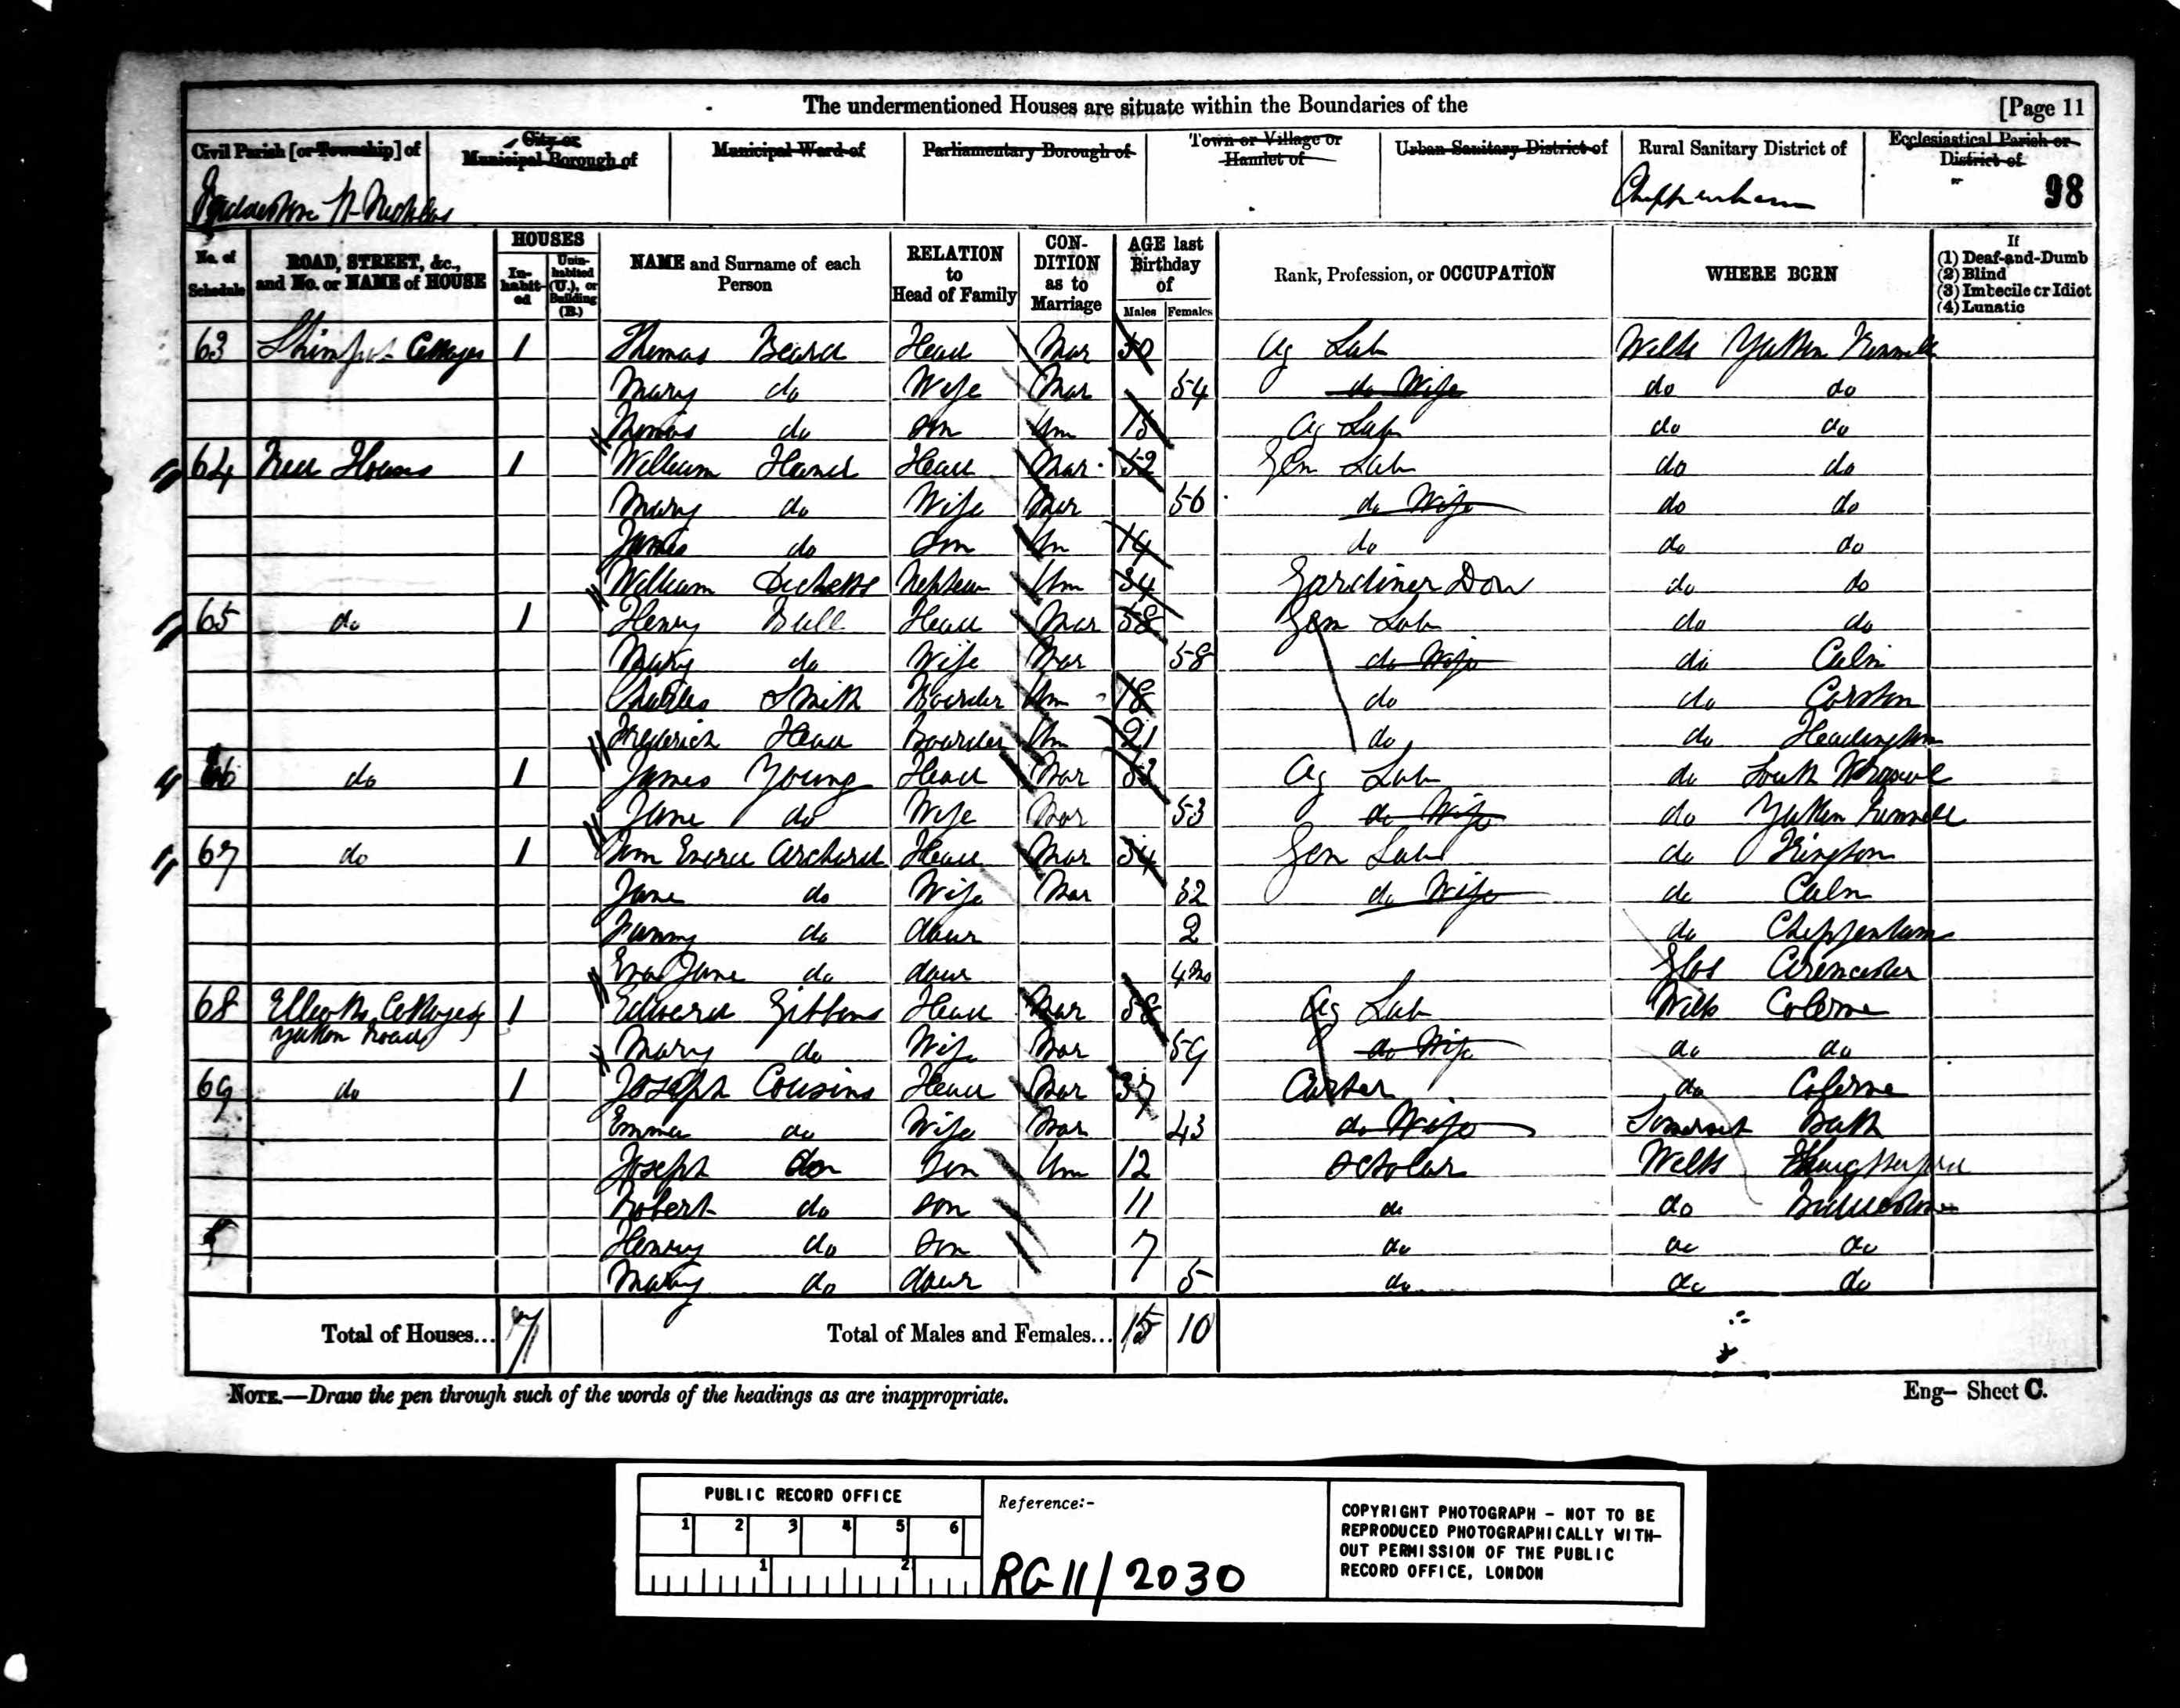 The undermentioned Houses are situate within the Boundaries of the [Page 11
Civil Parish [or Township] of City or Municipal Borough of Municipal Ward of Parliamentary Borough of Town or Village or Hamlet of Urban Sanitary District of Rural Sanitary District of Ecclesiastical Parish or District of
St Nicholas Chippenham 98
No. of Schedule ROAD, STREET, &c., and No. or NAME of HOUSE HOUSES Inhabited Uninhabited (U.), or Building (B.) NAME and Surname of each Person RELATION to Head of Family CONDITION as to Marriage AGE last Birthday of Males Females Rank, Profession, or OCCUPATION WHERE BORN If (1) Deaf-and-Dumb (2) Blind (3) Imbecile or Idiot (4) Lunatic
63 Cottages 1 Thomas Beard Head Mar 50 Ag Lab Wilts Yatton Kennell
Mary do Wife Mar 54 do Wife do do
Thomas do Son Um 15 Ag Lab do do
64 1 William Head Mar 52 Gen Lab do do
Mary do Wife Mar 56 do Wife do do
James do Son Un 14 do do do
William Nephew Um 34 Gardiner Dom do do
65 do 1 Henry Bull Head Mar 58 Gen Lab do do
Mary do Wife Mar 58 do Wife do Caln
Charles Smith Boarder Um 18 do do Corston
Frederick Head Boarder Um 21 do do
66 do 1 James Young Head Mar Ag Lab do South Wraxall
Jane do Wife Mar 53 do Wife do Yatton Kennell
67 do 1 Archard Head Mar 34 Gen Lab do Kington
Jane do Wife Mar 32 do Wife do Caln
Fanny do daur 2 do Chippenham
Eva Jane do daur 4 Mo Glos Cirencester
68 Cottages 1 Edward Gibbons Head Mar 58 Ag Lab Wilts Colerne
Yatton Road Mary do Wife Mar 59 do Wife do do
69 do 1 Joseph Cousins Head Mar 37 Carter do Colerne
Emma do Wife Mar 43 do Wife Somerset Bath
Joseph do Son Um 12 Scholar Wilts
Robert do Son 11 do do
Henry do Son 7 do do do
Mary do daur 5 do do do
Total of Houses... 7 Total of Males and Females... 15 10
NOTE.—Draw the pen through such of the words of the headings as are inappropriate. Eng— Sheet C.
PUBLIC RECORD OFFICE
1 2 3 4 5 6
1 2
Reference:-
RG 11/2030
COPYRIGHT PHOTOGRAPH - NOT TO BE
REPRODUCED PHOTOGRAPHICALLY WITH-
OUT PERMISSION OF THE PUBLIC
RECORD OFFICE, LONDON